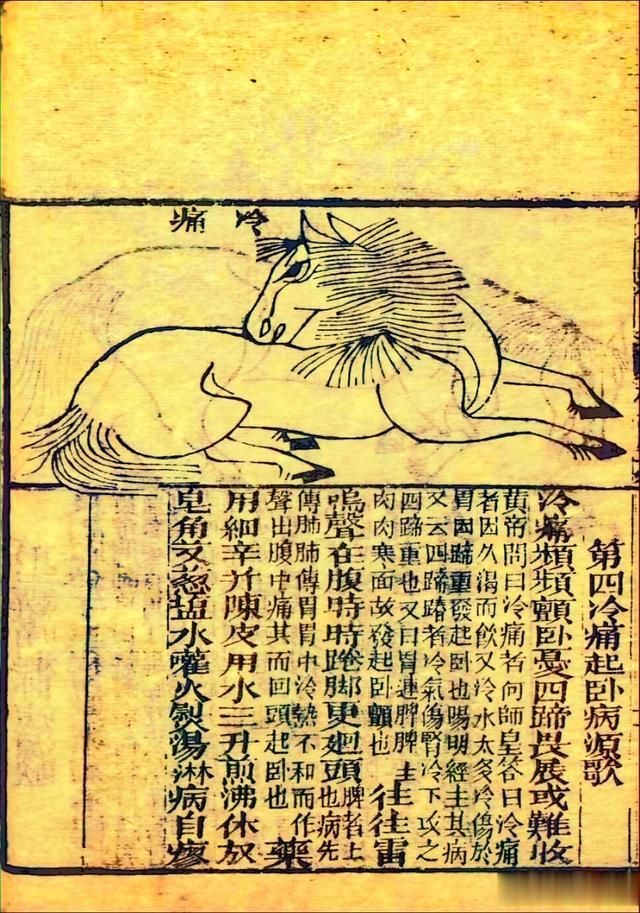 冷痛
第四冷痛起卧病源歌
冷痛頻頻顫卧憂四蹄畏展或難收
黄帝問曰冷痛者何師皇答曰冷痛
者因久渴而飲又冷水太多冷傷於
胃因蹄重發起卧也陽明經主其病
又云四蹄蹲者冷氣傷腎冷下攻之
四蹄重也又曰胃連脾脾主
肉肉寒面故發起卧顫也
往往雷
鳴聲在腹時時踡脚更廻頭
脾者上
也病先
傳肺肺傳胃胃中冷熱不和而作
聲出腹中痛其而回頭起卧也
藥
用細辛并陳皮用水三升煎沸休放
皂角叉葱塩水灌火裂湯淋病自瘳